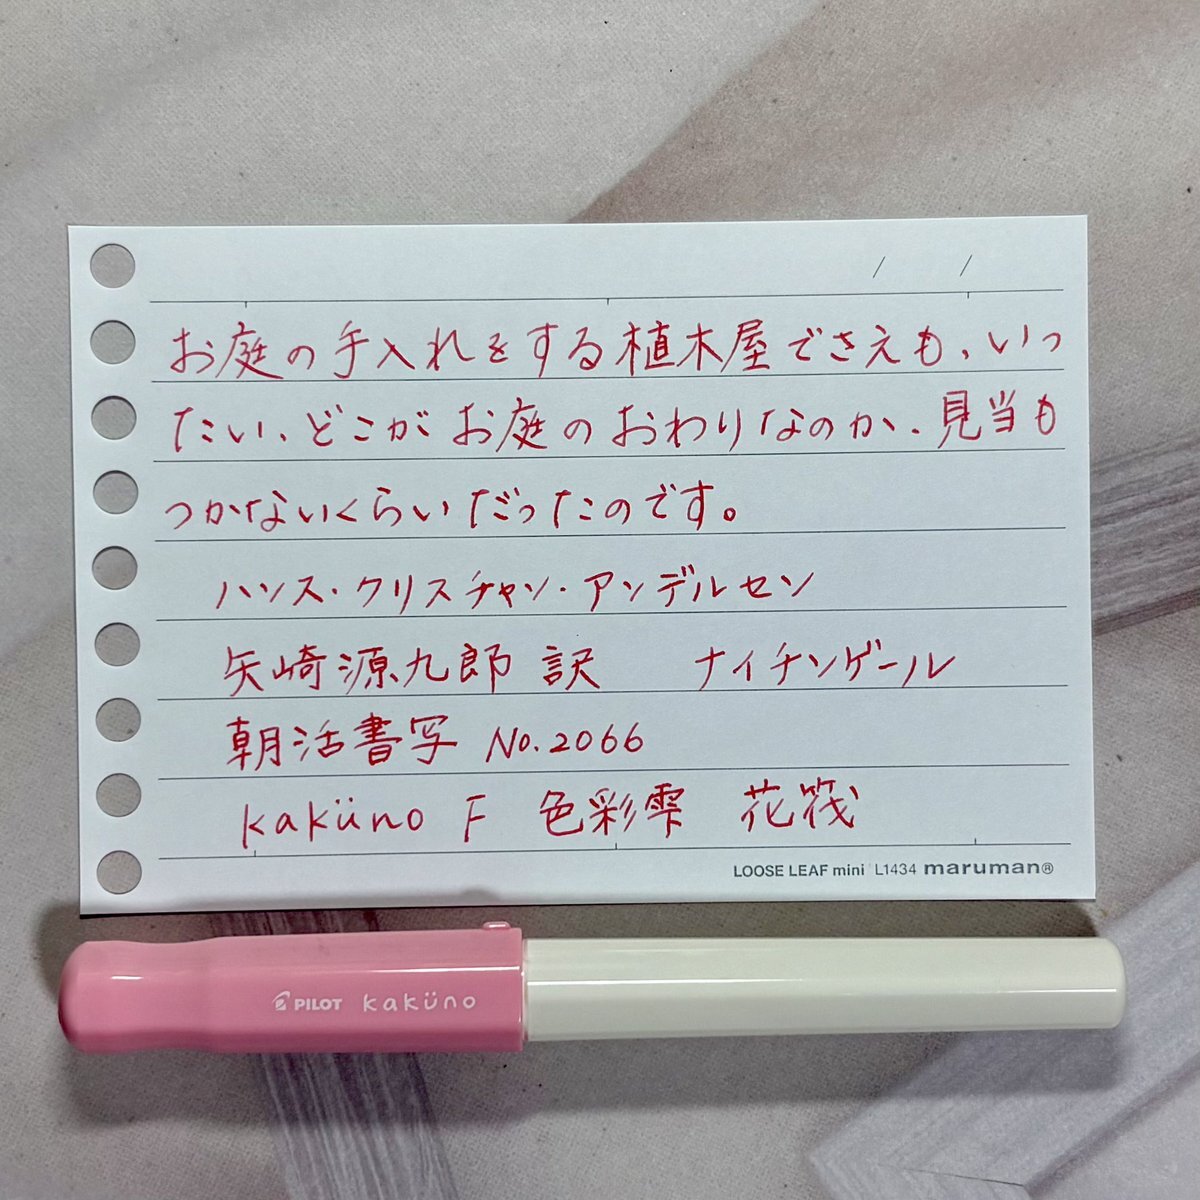 / /
お庭の手入れをする植木屋でさえも、いっ
たい、どこがお庭のおわりなのか、見当も
つかないくらいだったのです。
ハンス・クリスチャン・アンデルセン
矢崎源九郎 訳 ナイチンゲール
朝活書写 No.2066
kaküno F 色彩雫 花筏
LOOSE LEAF mini L1434 maruman®
PILOT kaküno